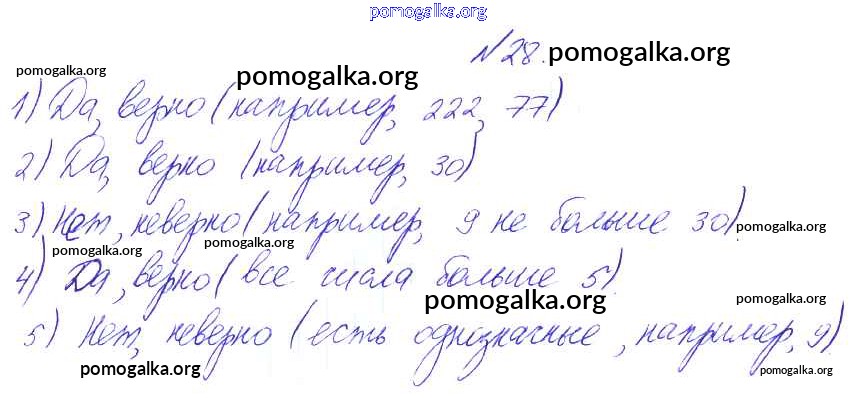 pomogalka.org
№28. pomogalka.org
pomogalka.org pomogalka.org
1) Да, верно (например, 222, 77)
2) Да, верно (например, 30)
3) Нет, неверно (например, 9 не больше 30). pomogalka.org
pomogalka.org pomogalka.org
4) Да, верно (все числа больше 5)
pomogalka.org pomogalka.org
5) Нет, неверно (есть однозначные, например, 9)
pomogalka.org pomogalka.org